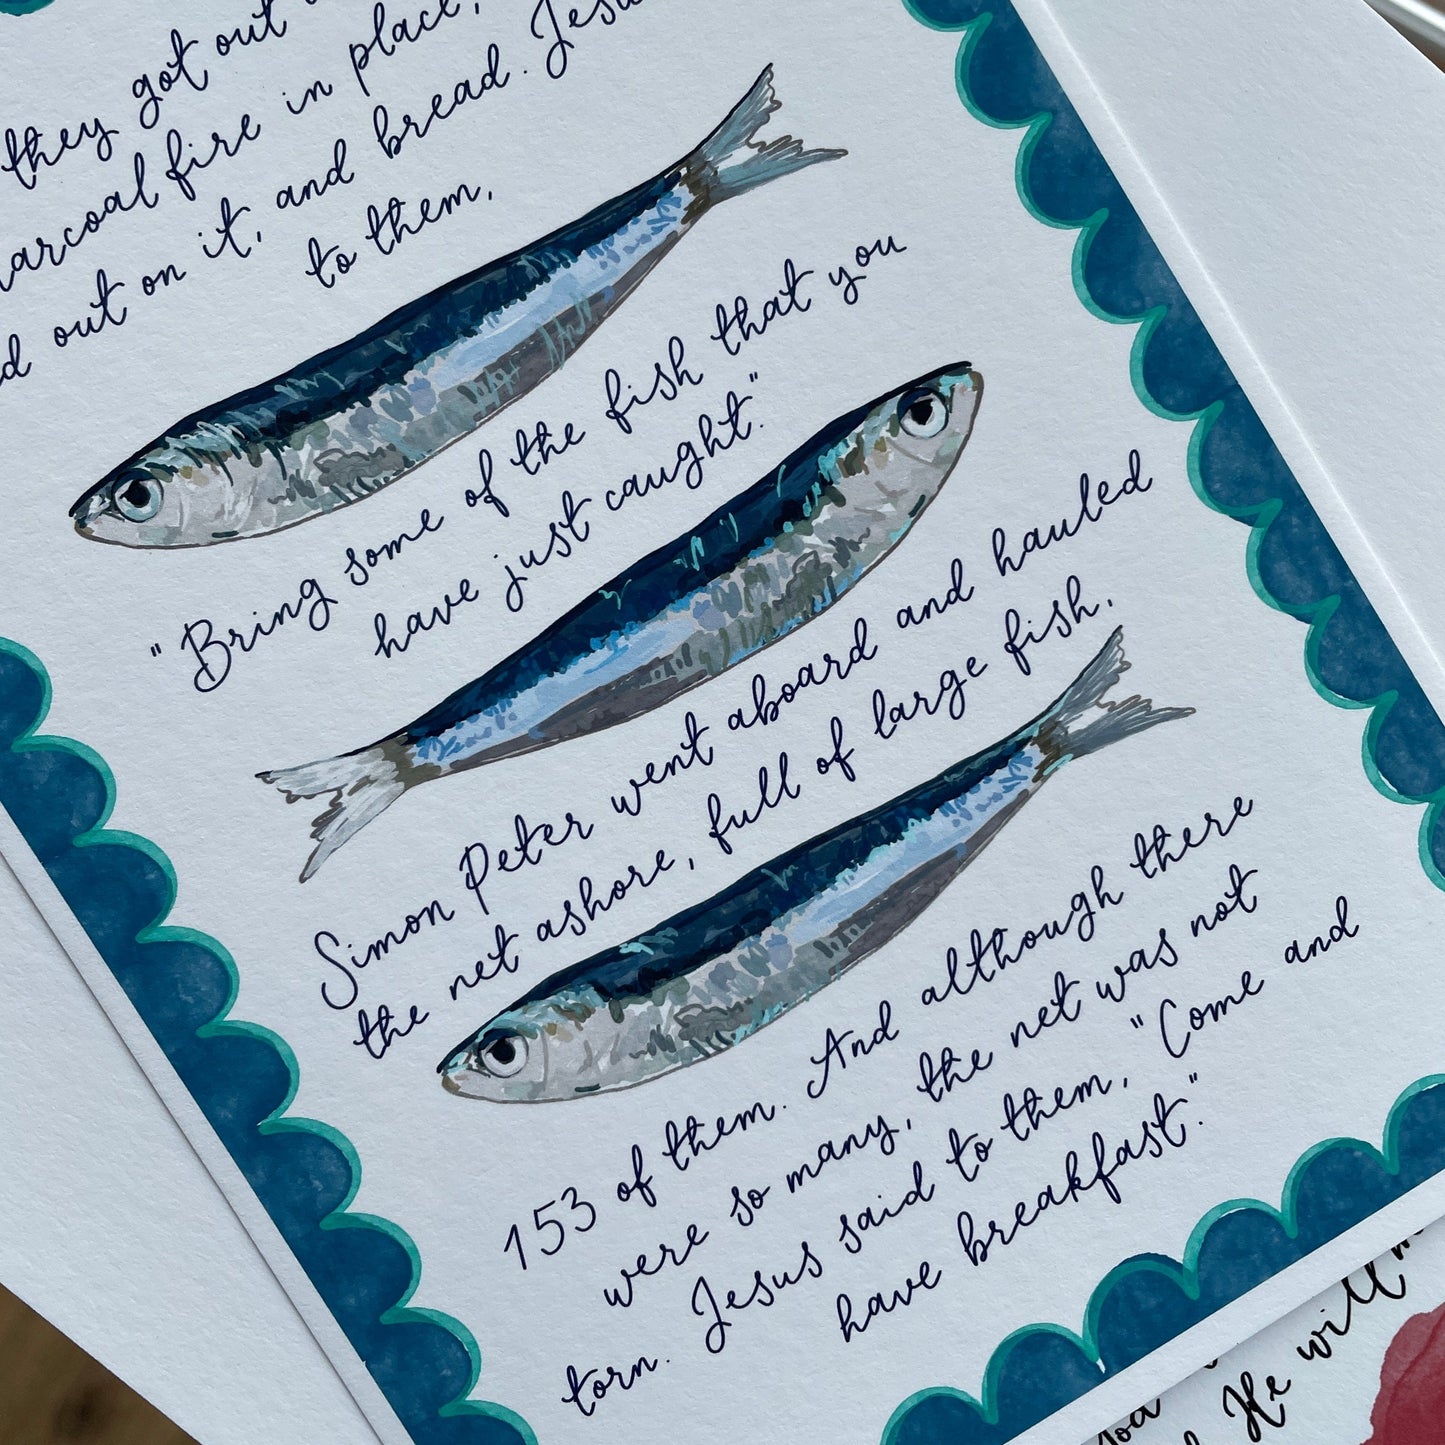 they got out
charcoal fire in place,
out on it, and bread. Jesus
to them,
"Bring some of the fish that you
have just caught."
Simon Peter went aboard and hauled
the net ashore, full of large fish,
153 of them. And although there
were so many, the net was not
torn. Jesus said to them, "Come and
have breakfast."
He will